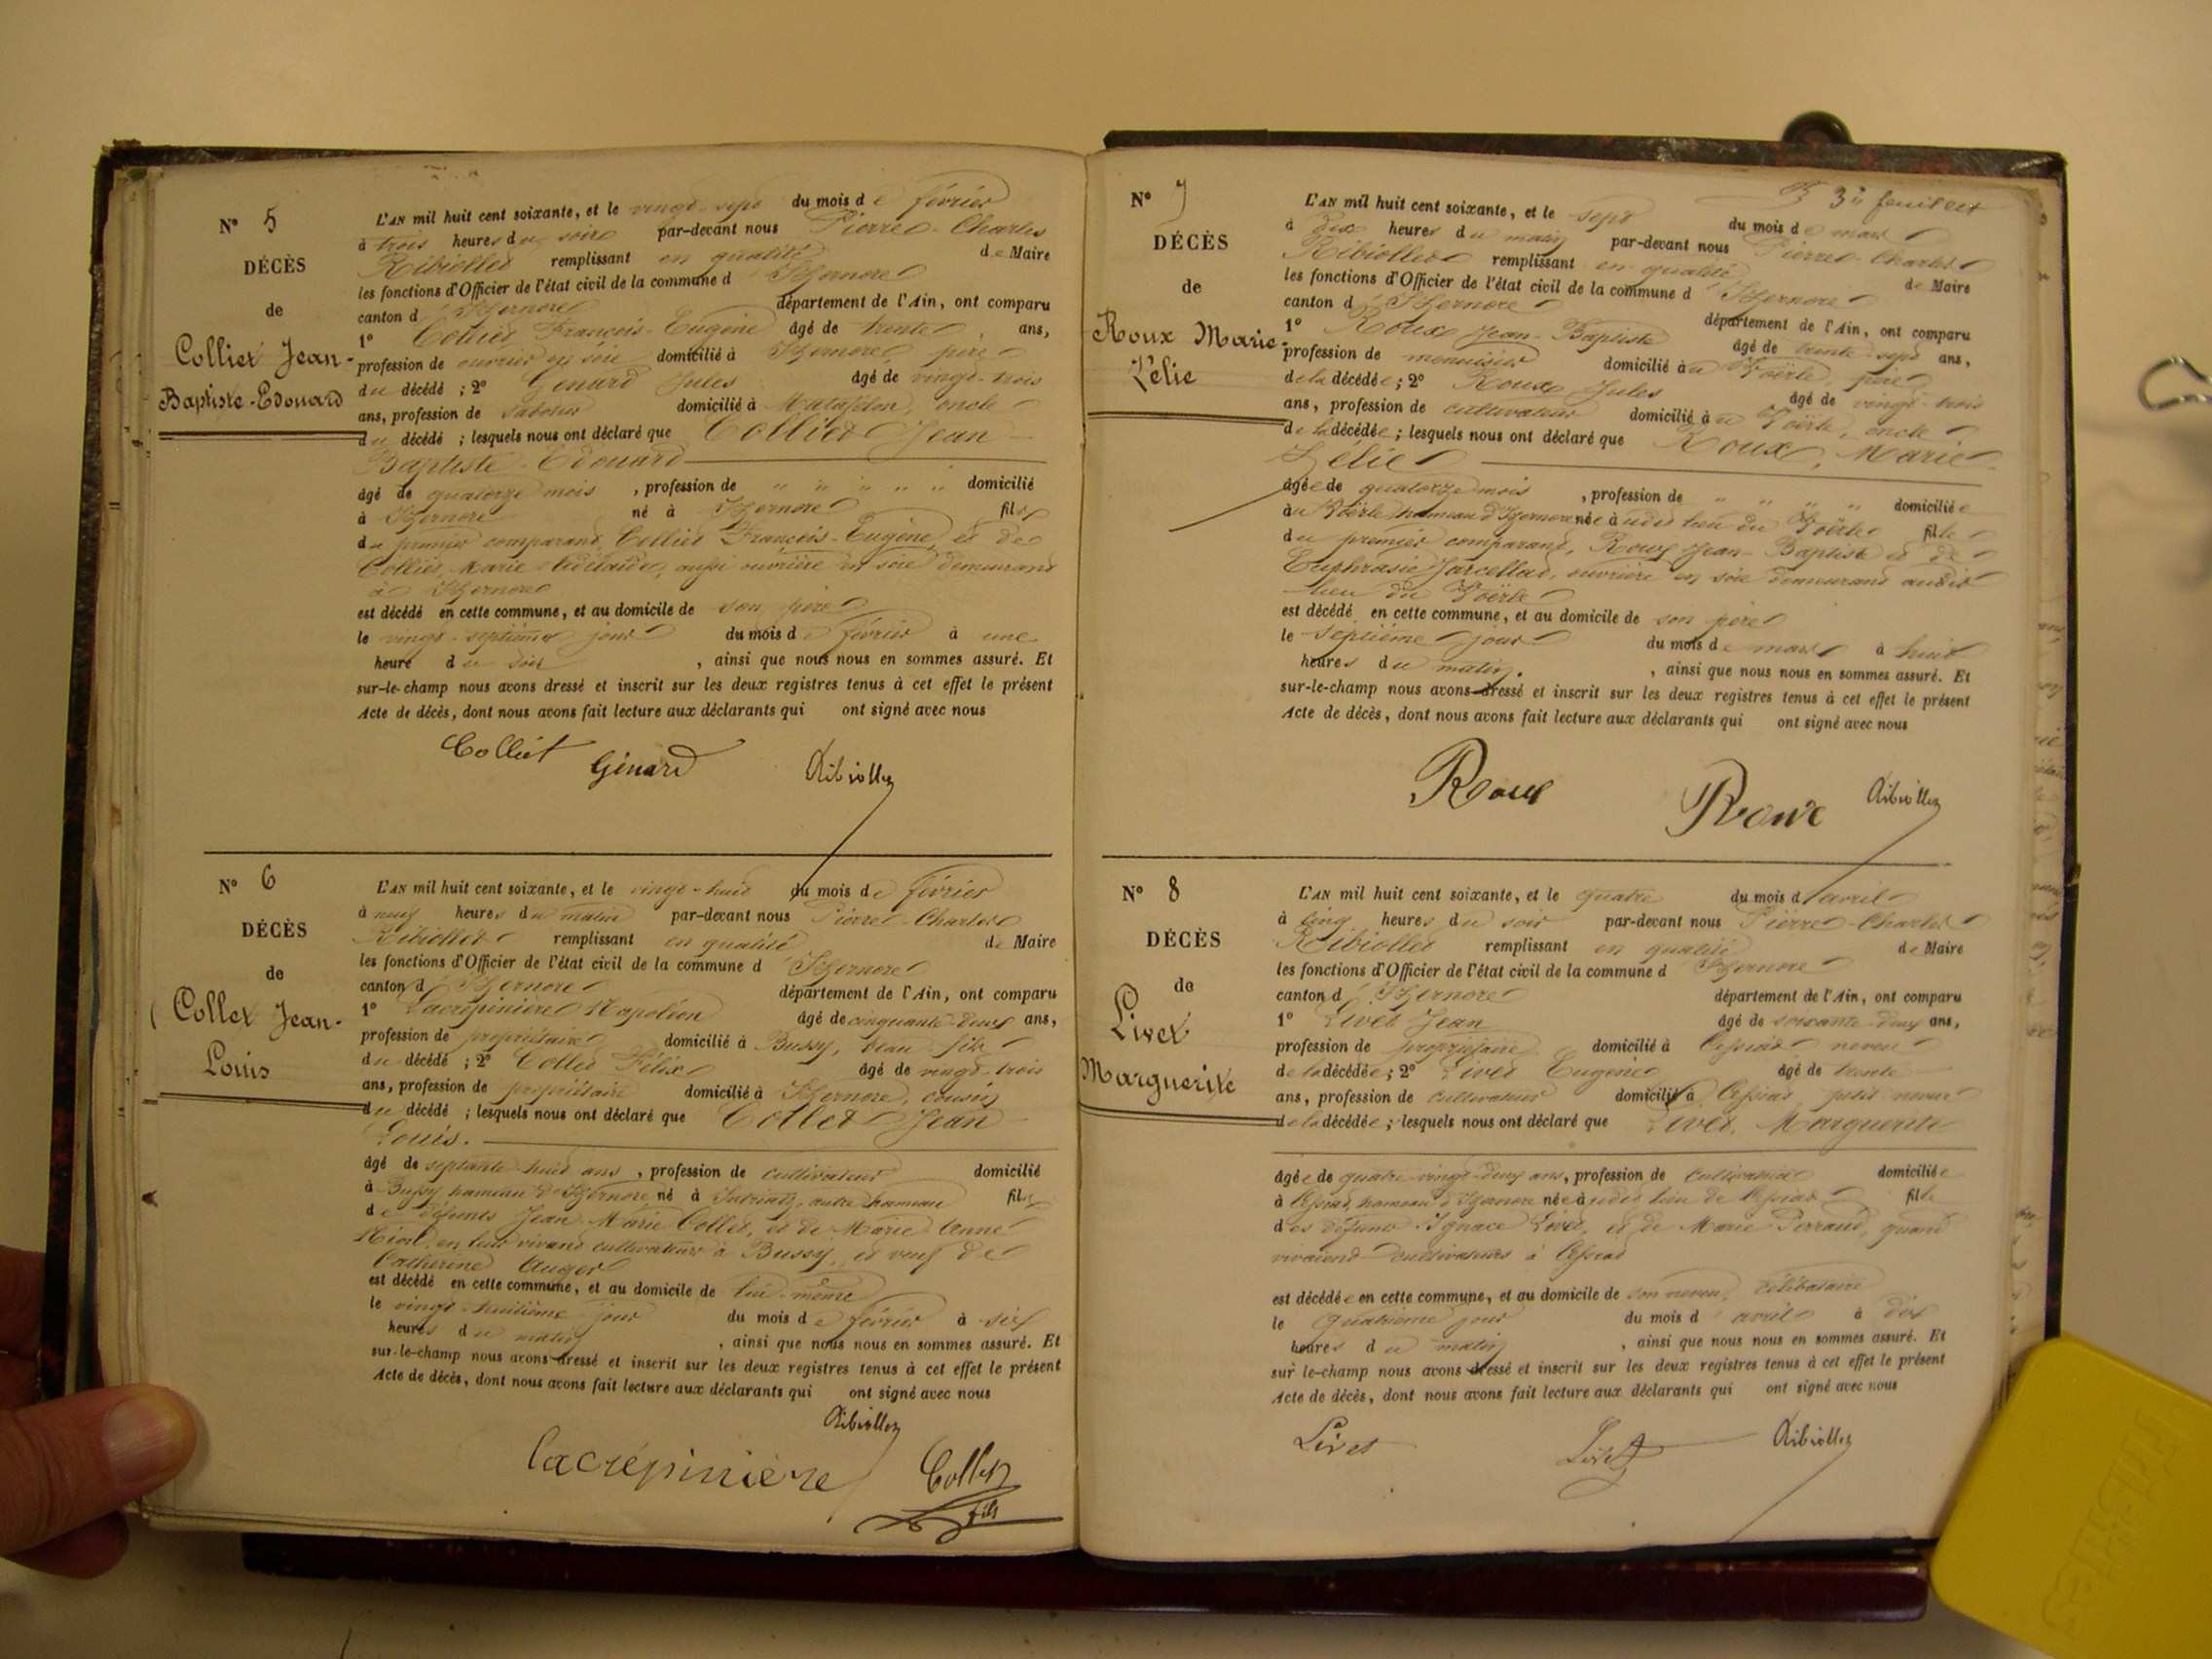 N° 5
DÉCÈS
de
Colliet Jean-
Baptiste-Edouard
L'AN mil huit cent soixante, et le vingt-sept du mois de février
à trois heures du soir par-devant nous Pierre-Charles
Ribiollet remplissant en qualité de Maire
les fonctions d'Officier de l'état civil de la commune d'Izernore
canton d'Izernore département de l'Ain, ont comparu
1° Colliet François-Eugène âgé de trente ans,
profession de ouvrier en soie domicilié à Izernore, père
du décédé ; 2° Génard Jules âgé de vingt-trois
ans, profession de domicilié à Matafelon, oncle
du décédé ; lesquels nous ont déclaré que Colliet Jean
Baptiste-Edouard
âgé de quatorze mois , profession de " " " " " domicilié
à Izernore né à Izernore fils
du premier comparant, Colliet François-Eugène, et de
Colliet, Marie Adélaïde, aussi ouvrière en soie demeurant
à Izernore
est décédé en cette commune, et au domicile de son père
le vingt-septième jour du mois de février à une
heure du soir , ainsi que nous nous en sommes assuré. Et
sur-le-champ nous avons dressé et inscrit sur les deux registres tenus à cet effet le présent
Acte de décès, dont nous avons fait lecture aux déclarants qui ont signé avec nous
Colliet Génard Ribiollet
N° 6
DÉCÈS
de
Collet Jean-
Louis
L'AN mil huit cent soixante, et le vingt-huit du mois de février
à neuf heures du matin par-devant nous Pierre-Charles
Ribiollet remplissant en qualité de Maire
les fonctions d'Officier de l'état civil de la commune d'Izernore
canton d'Izernore département de l'Ain, ont comparu
1° Lacrépinière Napoléon âgé de cinquante-deux ans,
profession de propriétaire domicilié à Bussy, beau fils
du décédé ; 2° Collet Félix âgé de vingt-trois
ans, profession de propriétaire domicilié à Izernore, cousin
du décédé ; lesquels nous ont déclaré que Collet Jean
Louis.
âgé de septante-huit ans , profession de cultivateur domicilié
à Bussy hameau d'Izernore né à Intriat, autre hameau fils
de défunts Jean Marie Collet, et de Marie Anne
en leur vivant cultivateurs à Bussy, et veuf de
Catherine Auger
est décédé en cette commune, et au domicile de lui-même
le vingt-huitième jour du mois de février à six
heures du matin , ainsi que nous nous en sommes assuré. Et
sur-le-champ nous avons dressé et inscrit sur les deux registres tenus à cet effet le présent
Acte de décès, dont nous avons fait lecture aux déclarants qui ont signé avec nous
Ribiollet
Lacrépinière Collet
fils
3e feuillet
N° 7
DÉCÈS
de
Roux Marie-
Zélie
L'AN mil huit cent soixante, et le sept du mois de mars
à dix heures du matin par-devant nous Pierre-Charles
Ribiollet remplissant en qualité de Maire
les fonctions d'Officier de l'état civil de la commune d'Izernore
canton d'Izernore département de l'Ain, ont comparu
1° Roux Jean-Baptiste âgé de trente-sept ans,
profession de menuisier domicilié au Voërle, père
de la décédée ; 2° Roux Jules âgé de vingt-trois
ans, profession de cultivateur domicilié au Voërle, oncle
de la décédée ; lesquels nous ont déclaré que Roux, Marie
Zélie
âgée de quatorze mois , profession de " " " " domiciliée
au Voërle hameau d'Izernore née audit lieu du Voërle fille
du premier comparant, Roux Jean-Baptiste et de
Euphrasie Jarcellat, ouvrière en soie demeurant audit
lieu du Voërle
est décédé en cette commune, et au domicile de son père
le septième jour du mois de mars à huit
heures du matin. , ainsi que nous nous en sommes assuré. Et
sur-le-champ nous avons dressé et inscrit sur les deux registres tenus à cet effet le présent
Acte de décès, dont nous avons fait lecture aux déclarants qui ont signé avec nous
Roux Roux Ribiollet
N° 8
DÉCÈS
de
Livet
Marguerite
L'AN mil huit cent soixante, et le quatre du mois d'avril
à cinq heures du soir par-devant nous Pierre-Charles
Ribiollet remplissant en qualité de Maire
les fonctions d'Officier de l'état civil de la commune d'Izernore
canton d'Izernore département de l'Ain, ont comparu
1° Livet Jean âgé de soixante-deux ans,
profession de propriétaire domicilié à Cessiat neveu
de la décédée ; 2° Livet Eugène âgé de trente
ans, profession de cultivateur domicilié à Cessiat petit neveu
de la décédée ; lesquels nous ont déclaré que Livet, Marguerite
âgée de quatre-vingt-deux ans, profession de cultivatrice domiciliée
à Cessiat, hameau d'Izernore née audit lieu de Cessiat fille
des défunts Ignace Livet, et de Marie Perraud, quand
vivaient cultivateurs à Cessiat
est décédée en cette commune, et au domicile de son neveu, célibataire
le quatrième jour du mois d'avril à dix
heures du matin , ainsi que nous nous en sommes assuré. Et
sur le-champ nous avons dressé et inscrit sur les deux registres tenus à cet effet le présent
Acte de décès, dont nous avons fait lecture aux déclarants qui ont signé avec nous
Livet Livet Ribiollet